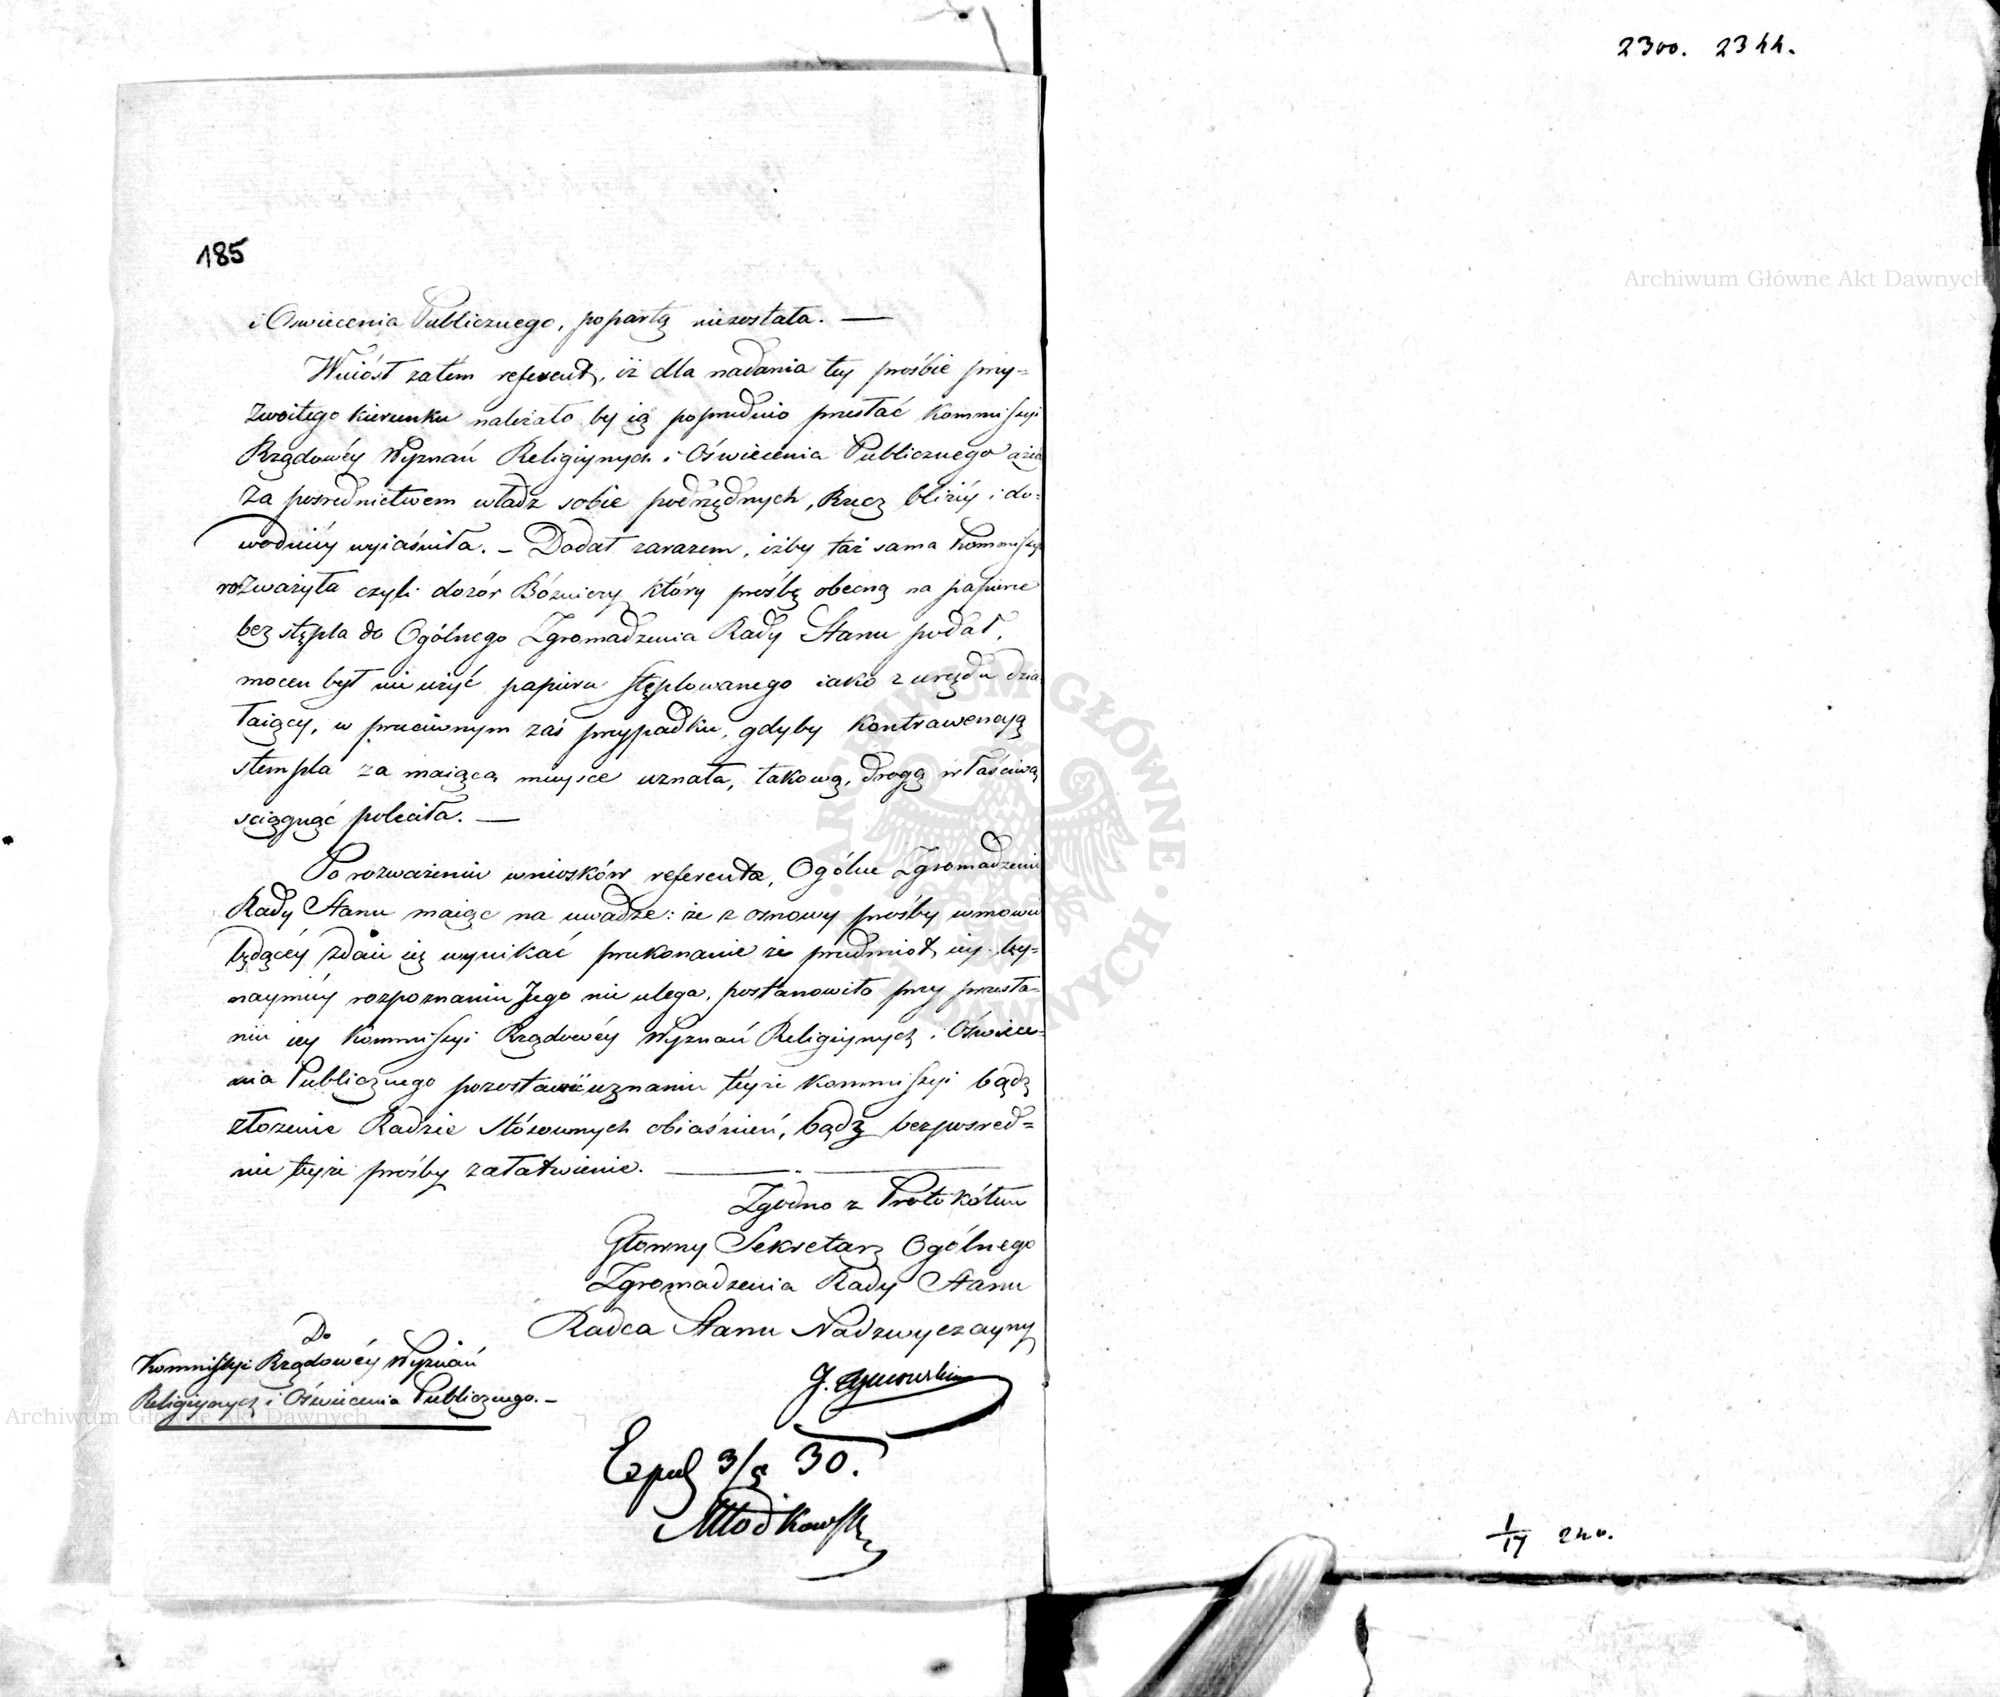 2300. 2344.
185
i Oswiecenia Publicznego, popartą niezostała. —
Wniósł zatem referent, iż dla nadania tey prośbie przy=
zwoitego kierunku należało by ią poprzednio przesłać Kommissyi
Rządowéy Wyznań Religiynych i Oświecenia Publicznego ażeby
za posrednictwem władz sobie podrzędnych, Rzecz bliżéy i do=
wodniéy wyiaśniła. — Dodał zarazem, iżby taż sama Kommissya
rozważyła czyli dozór Bóżniczy który prośbę obecną na papierze
bez stępla do Ogólnego Zgromadzenia Rady Stanu podał,
mocen był nie użyć papieru stęplowanego iako z urzędu dzia
łaiący, w przeciwnym zaś przypadku, gdyby Kontrawencyą
stempla za maiącą mieysce uznała, takową, drogą właściwą
sciągnąć poleciła. —
Po rozważeniu wniosków referenta, Ogólne Zgromadzenie
Rady Stanu maiąc na uwadze: że z osnowy prośby w mowie
będącéy zdaie się wynikać przekonanie że przedmiot iey by=
naymniéy rozpoznaniu Jego nie ulega, postanowiło przy przesła=
niu iey Kommissyi Rządowéy Wyznań Religiynych i Oświece=
nia Publicznego pozostawić uznaniu teyże Kommissyi bądź
złożenie Radzie stósownych obiaśnień, bądź bezposred=
nie teyże prośby załatwienie.
Zgodno z Protokółem
Głowny Sekretarz Ogólnego
Zgromadzenia Rady Stanu
Radca Stanu Nadzwyczayny
J.
Do
Kommissyi Rządowéy Wyznań
Religiynych i Oświecenia Publicznego. —
Exped 3/5 30.
Młodkowski
1/17 240.
Archiwum Główne Akt Dawnych
Archiwum Główne Akt Dawnych
ARCHIWUM GŁÓWNE AKT DAWNYCH